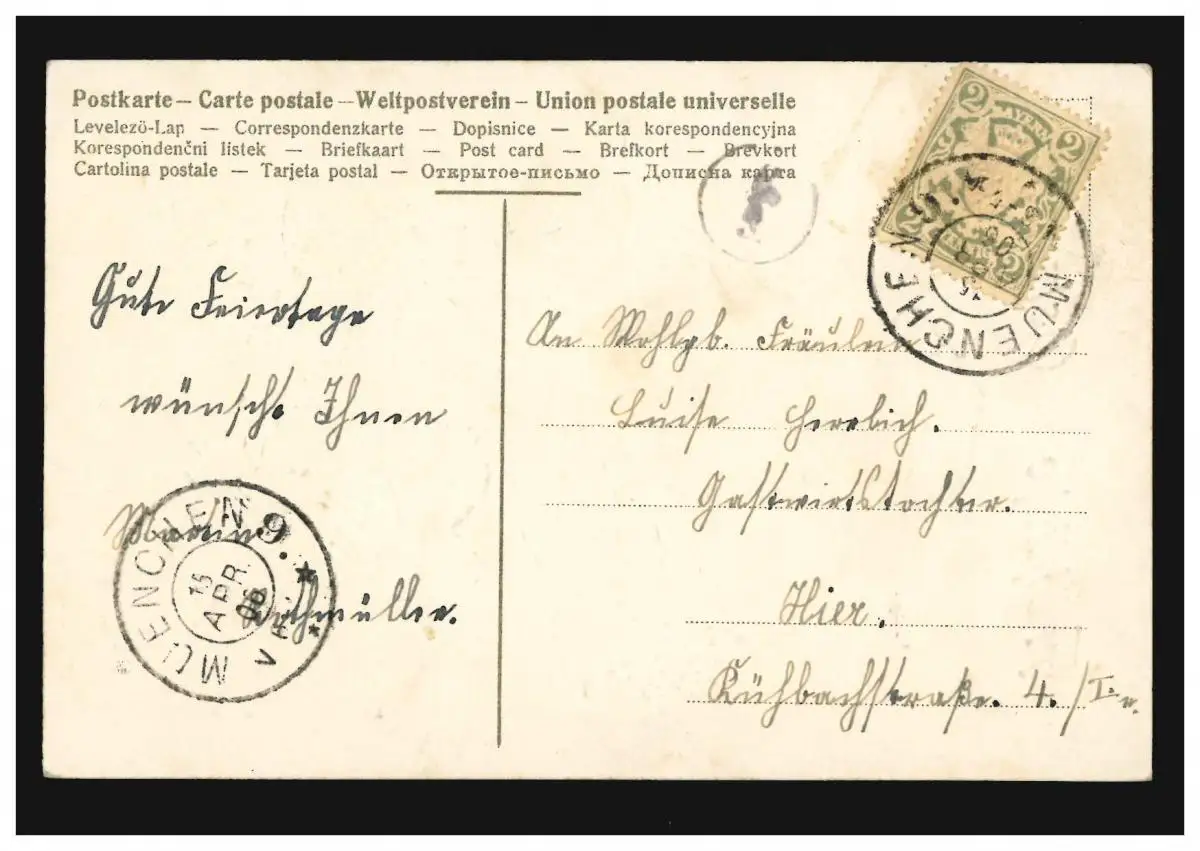 Postkarte – Carte postale – Weltpostverein – Union postale universelle
Levelezö-Lap — Correspondenzkarte — Dopisnice — Karta korespondencyjna
Korespondenčni listek — Briefkaart — Post card — Brefkort — Brevkort
Cartolina postale — Tarjeta postal — Открытое-письмо — Дописна карта
2 2
2 2
MUENCHEN 9.
Gute Feiertage
wünscht Ihnen
An Wohlgb. Fräulein
Luise Herrlich.
Gastwirtstochter.
Hier.
Kühbachstraße. 4./I. r.
MUENCHEN 9.
15
APR.
06